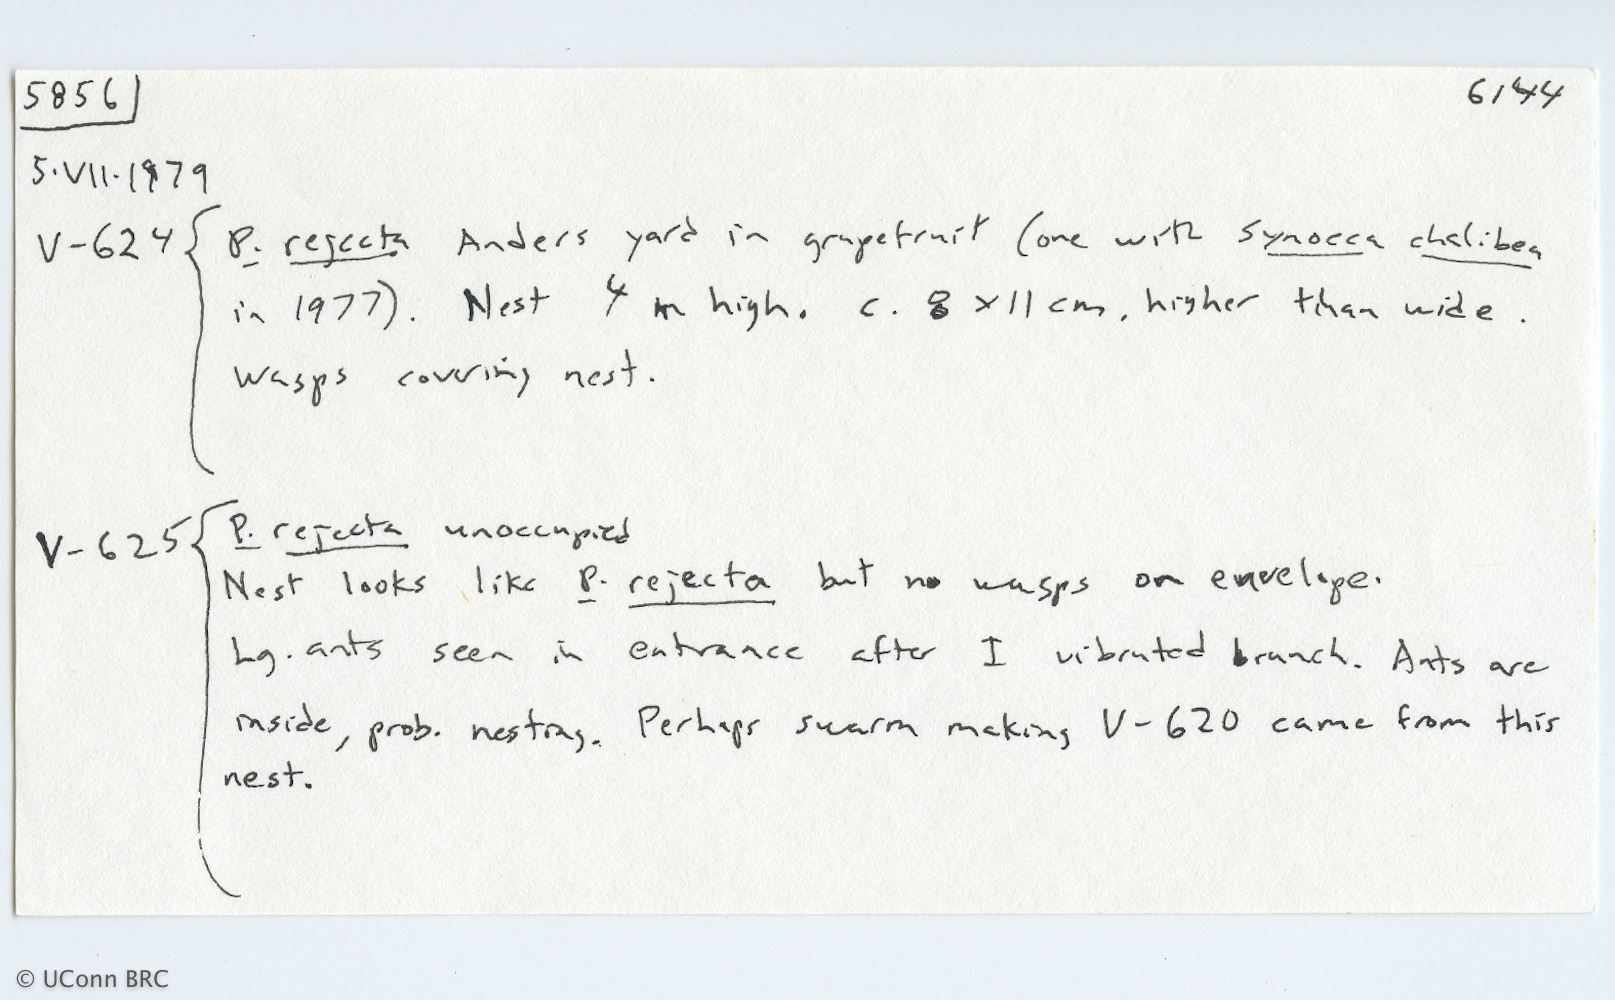 5856 6144
5.VII.1979
V-624 P. rejecta Anders yard in grapefruit (one with Synoeca chalibea
in 1977). Nest 4 m high. c. 8 x 11 cm, higher than wide.
Wasps covering nest.
V-625 P. rejecta unoccupied
Nest looks like P. rejecta but no wasps on envelope.
Lg. ants seen in entrance after I vibrated branch. Ants are
inside, prob. nesting. Perhaps swarm making V-620 came from this
nest.
© UConn BRC